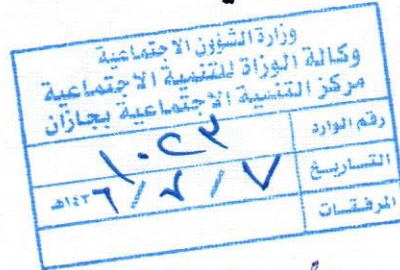 وزارة الشؤون الاجتماعية
وكالة الوزارة للتنمية الاجتماعية
مركز التنمية الاجتماعية بجازان
رقم الوارد
التاريخ ٧ / ٢ / ٦ ١٤٣هـ
المرفقات